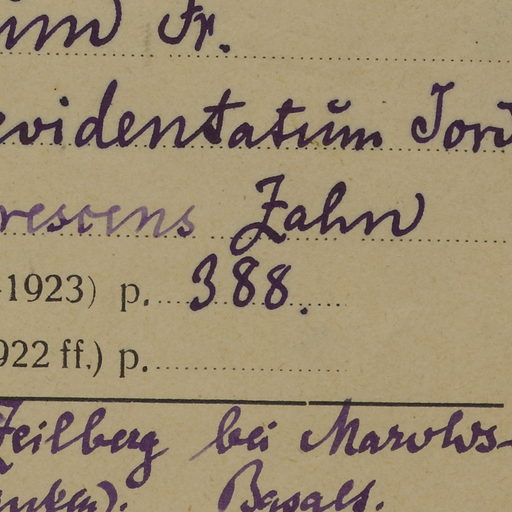 um Fr.
evidentatum Jord
rescens Zahn
-1923) p. 388.
922 ff.) p.
Zeilberg bei Marolds-
anken). Basalt.